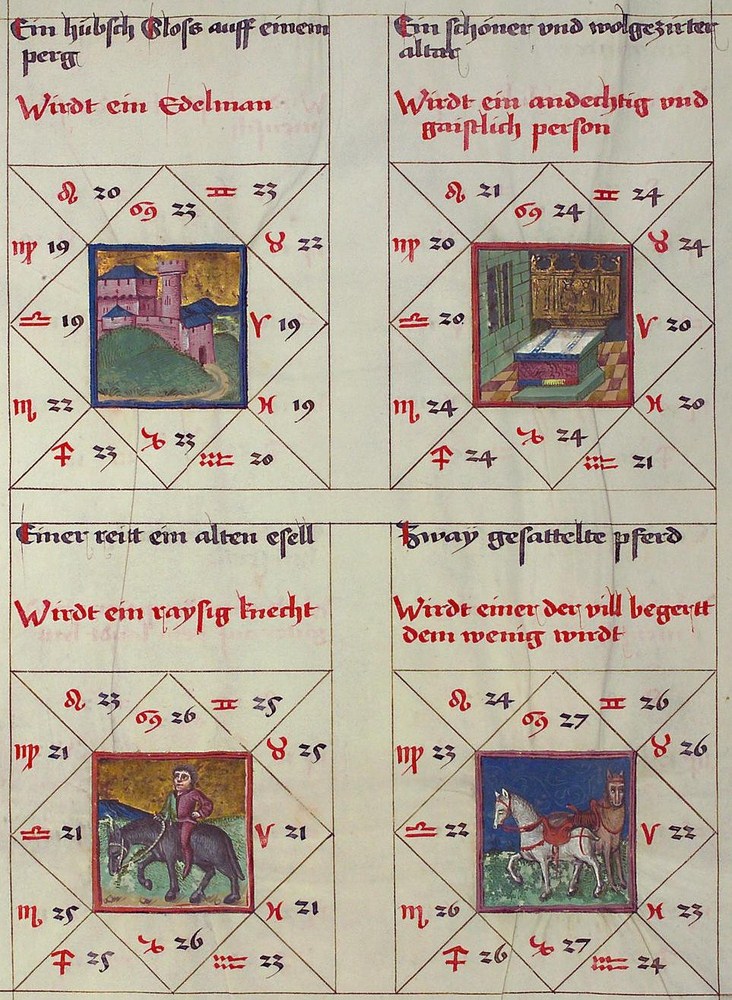 Ein hübsch Slos auff einem
perg
Wirdt ein Edelman
♌ 20 ♊ 23
♋ 23
♍ 19 ♉ 22
♎ 19 ♈ 19
♏ 22 ♓ 19
♑ 23
♐ 23 ♒ 20
Ein schöner vnd wolgezirter
altar
Wirdt ein andechtig vnd
gaistlich person
♌ 21 ♊ 24
♋ 24
♍ 20 ♉ 24
♎ 20 ♈ 20
♏ 24 ♓ 20
♑ 24
♐ 24 ♒ 21
Einer reitt ein alten esell
Wirdt ein raysig knecht
♌ 23 ♊ 25
♋ 26
♍ 21 ♉ 25
♎ 21 ♈ 21
♏ 25 ♓ 21
♑ 26
♐ 25 ♒ 23
Zway gesattelte pferd
Wirdt einer der vill begertt
dem wenig wirdt
♌ 24 ♊ 26
♋ 27
♍ 23 ♉ 26
♎ 22 ♈ 22
♏ 26 ♓ 23
♑ 27
♐ 26 ♒ 24